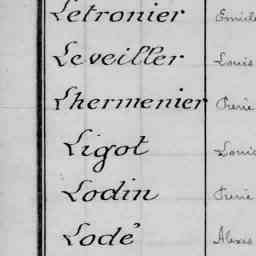 Letronier Emile
Leveiller Louis
Lhermenier Pierre
Ligot Louis
Lodin Pierre
Lodé Alexis